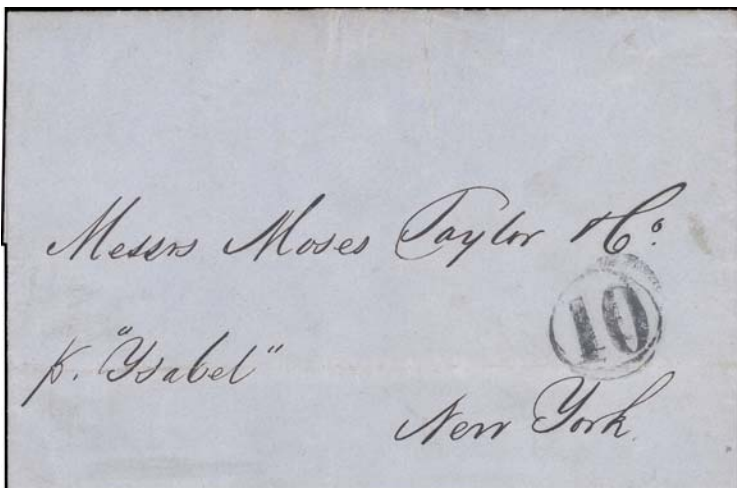 Messrs Moses Taylor & Co.
10
p. "Ysabel"
New York.